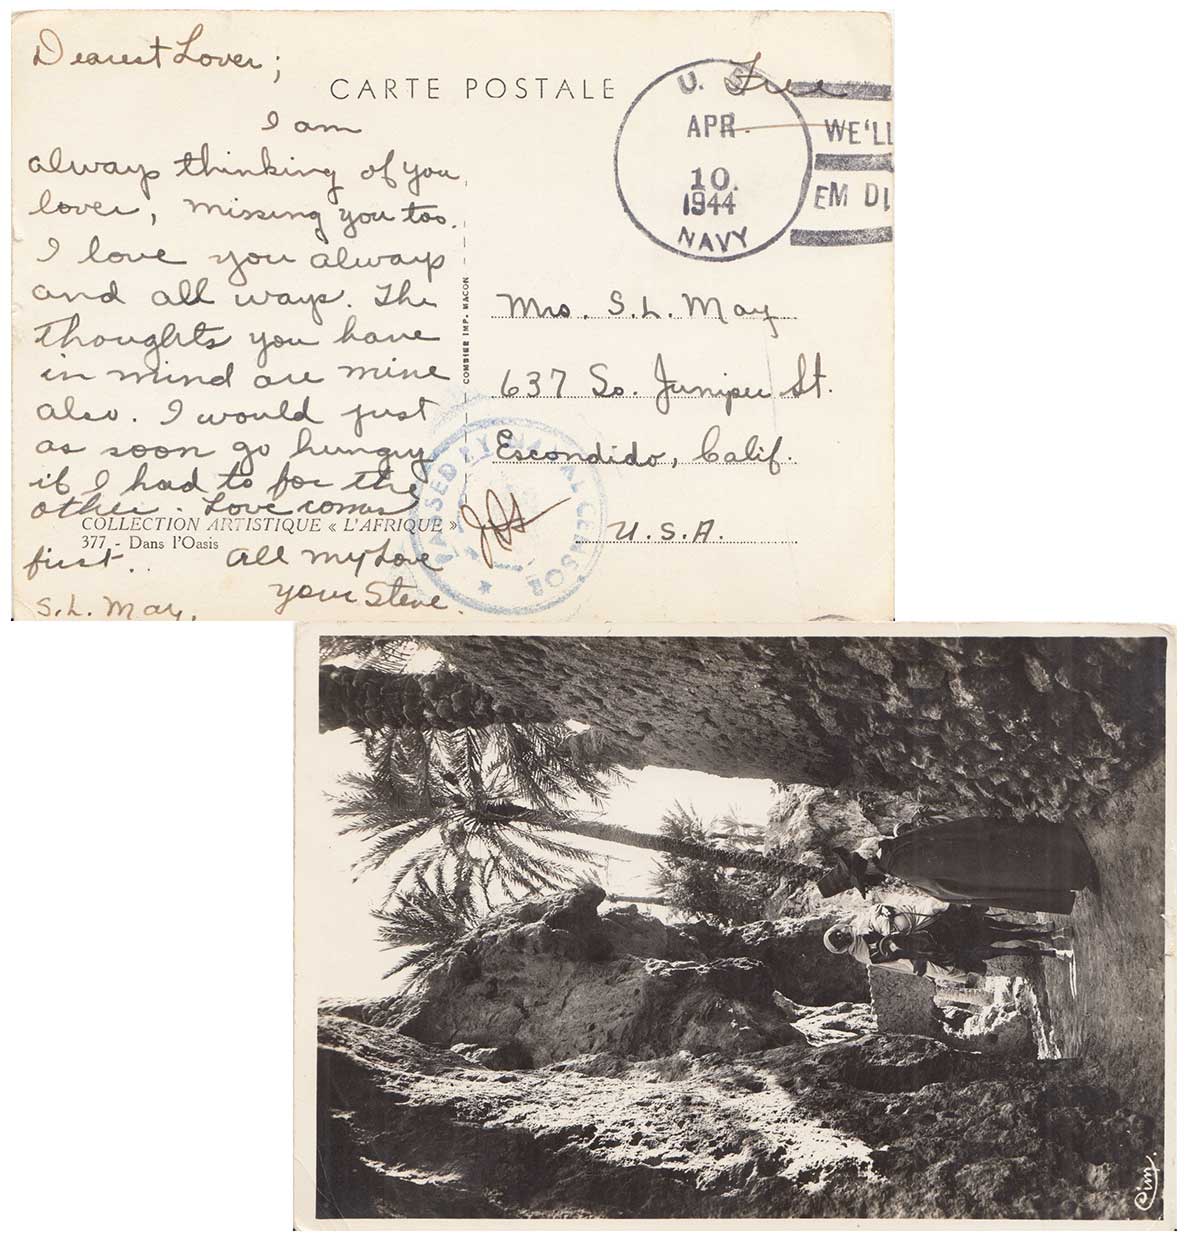 Dearest Lover;
CARTE POSTALE
I am
always thinking of you
lover, missing you too.
I love you always
and all ways. The
thoughts you have
in mind are mine
also. I would just
as soon go hungry
if I had to for the
other. Love comes
first. All my Love
your Steve.
S.L. May,
COLLECTION ARTISTIQUE « L'AFRIQUE »
377 - Dans l'Oasis
COMBIER IMP. MACON
Free
U. S.
APR.
10.
1944
NAVY
WE'LL
EM DI
Mrs. S.L. May
637 So. Juniper St.
Escondido, Calif.
U.S.A.
PASSED BY NAVAL CENSOR
Cim.